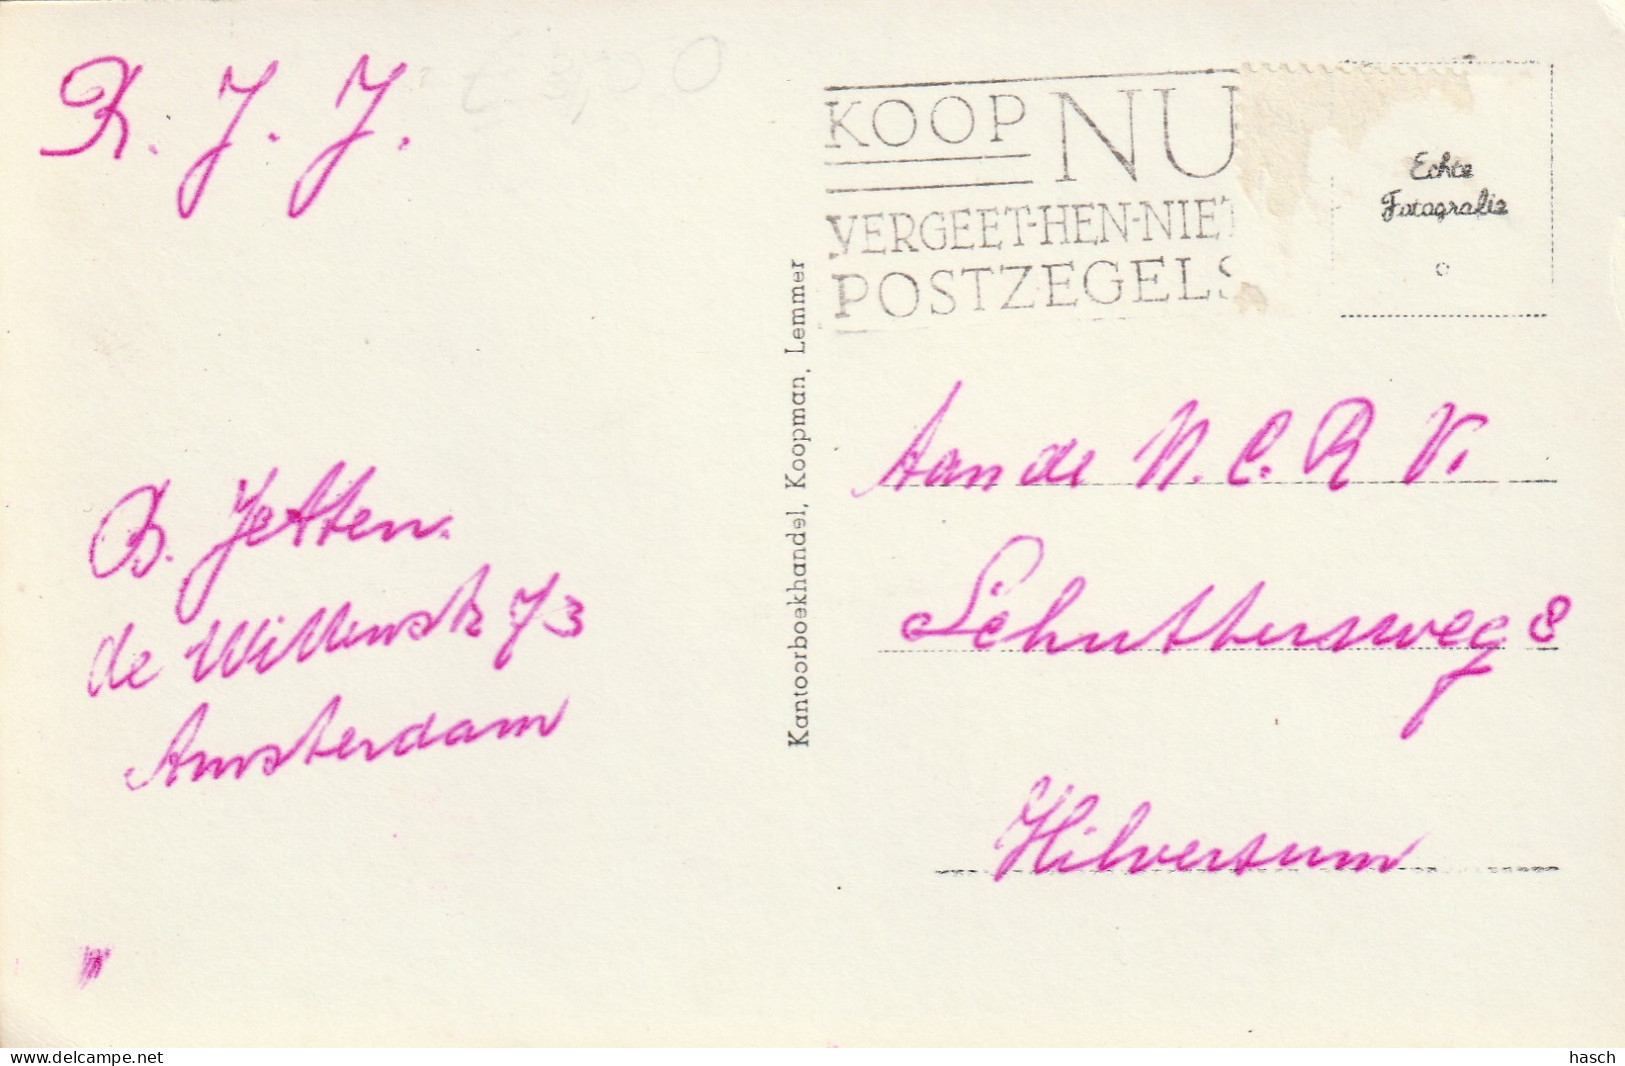 R. J. J.
€ 3,00
KOOP NU
VERGEET-HEN-NIET
POSTZEGELS
Echte
Fotografie
Kantoorboekhandel, Koopman, Lemmer
Aan de N.C.R.V.
Schuttersweg 8
Hilversum
B. Jetten.
de Wittenstr 73
Amsterdam
delcampe.net
hasch